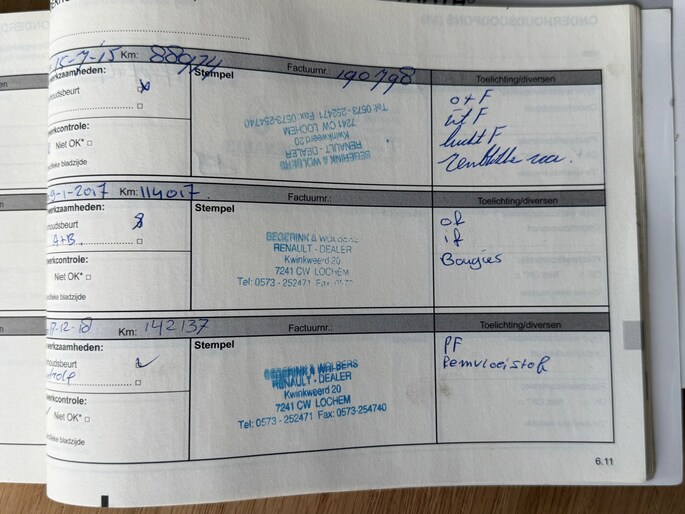 15-7-'15 Km: 88974
werkzaamheden: Stempel Factuurnr.: 190798 Toelichting/diversen
houdsbeurt
o+F
i/F
lucht F
werkcontrole:
Niet OK*
fieke bladzijde
Tel: 0573 - 252471 Fax: 0573-254740
7241 CW LOCHEM
Kwinkweerd 20
RENAULT - DEALER
BEGERINK & WOLBERS
9-1-2017 Km: 114017
werkzaamheden: Stempel Factuurnr.: Toelichting/diversen
houdsbeurt
A+B
of
if
Bougies
werkcontrole:
Niet OK*
fieke bladzijde
BEGERINK & WOLBERS
RENAULT - DEALER
Kwinkweerd 20
7241 CW LOCHEM
Tel: 0573 - 252471 Fax: 0573
17-12-18 Km: 142137
werkzaamheden: Stempel Factuurnr.: Toelichting/diversen
houdsbeurt
PF
Remvloeistof
werkcontrole:
Niet OK*
fieke bladzijde
BEGERINK & WOLBERS
RENAULT - DEALER
Kwinkweerd 20
7241 CW LOCHEM
Tel: 0573 - 252471 Fax: 0573-254740
6.11